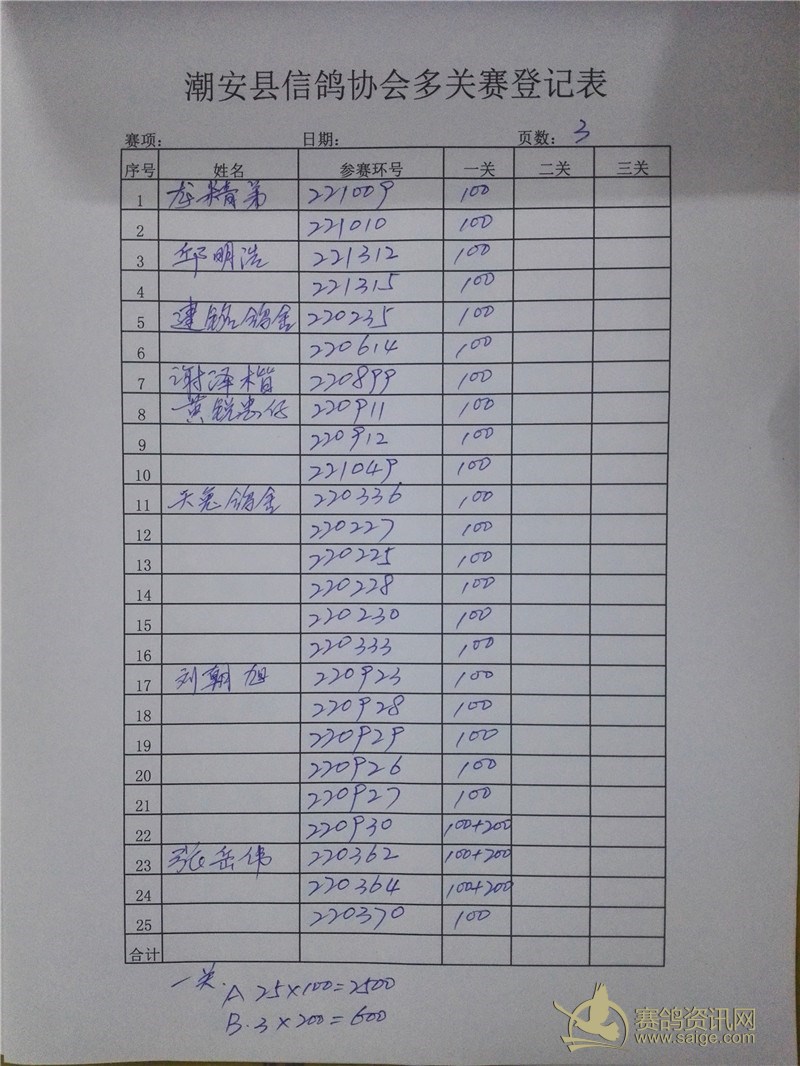 潮安县信鸽协会多关赛登记表
赛项: 日期: 页数: 3
序号 姓名 参赛环号 一关 二关 三关
1 龙精弟 221009 100
2 221010 100
3 邱明浩 221312 100
4 221315 100
5 建铭鸽舍 220235 100
6 220614 100
7 谢泽楷 220899 100
8 黄锐忠仔 220911 100
9 220912 100
10 221049 100
11 天苑鸽舍 220336 100
12 220227 100
13 220225 100
14 220228 100
15 220230 100
16 220333 100
17 刘朝旭 220923 100
18 220928 100
19 220929 100
20 220926 100
21 220927 100
22 220930 100+200
23 张岳伟 220362 100+200
24 220364 100+200
25 220370 100
合计
一关. A 25×100=2500
B. 3×200=600
赛鸽资讯网
www.saige.com